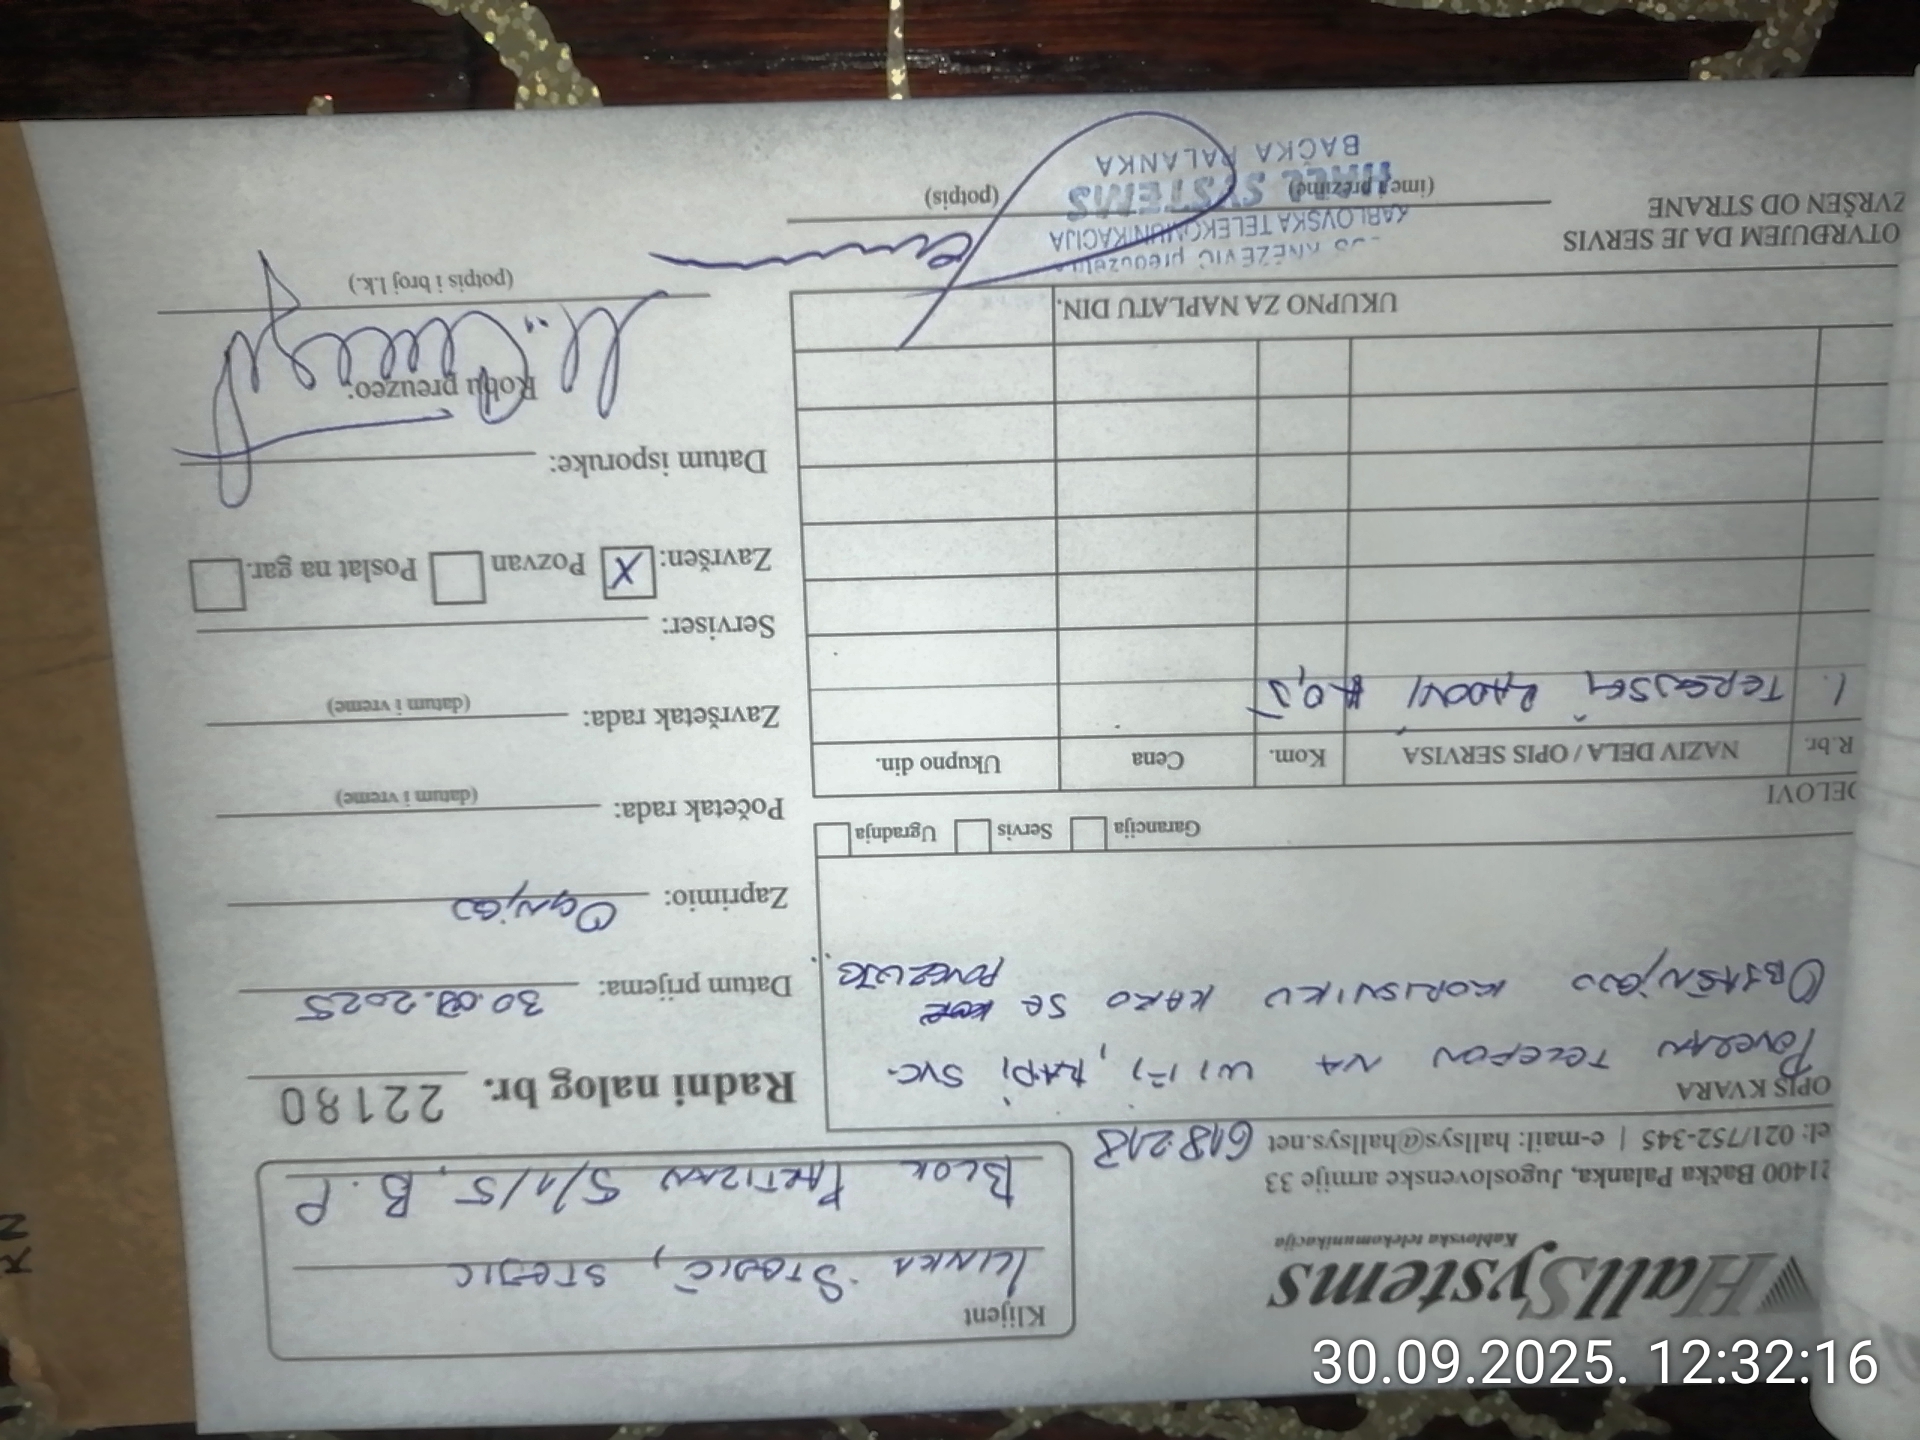 HallSystems
Kablovska telekomunikacija
21400 Bačka Palanka, Jugoslovenske armije 33
el: 021/752-345 | e-mail: hallsys@hallsys.net 618 218
Klijent
ILINKA STOJIĆ, STOJIC
BLOK PARTIZAN 5/1/5, B.P
Radni nalog br. 22180
OPIS KVARA
POVEZAN TELEFON NA WIFI, RADI SVE.
OBJAŠNJENO KORISNIKU KAKO SE POVEZUJE
Datum prijema: 30.09.2025
Zaprimio: OGNJEN
Početak rada:
(datum i vreme)
Završetak rada:
(datum i vreme)
Serviser:
Završen: X Pozvan Poslat na gar.
Datum isporuke:
Robu preuzeo:
(potpis i broj l.k.)
Garancija Servis Ugradnja
DELOVI
R.br. NAZIV DELA / OPIS SERVISA Kom. Cena Ukupno din.
1. TERENSKI RADOVI 0,5
UKUPNO ZA NAPLATU DIN.
OTVRĐUJEM DA JE SERVIS
ZVRŠEN OD STRANE
(ime i prezime) (potpis)
KNEŽEVIĆ preduzetn
KABLOVSKA TELEKOMUNIKACIJA
HALL SYSTEMS
BAČKA PALANKA
30.09.2025. 12:32:16